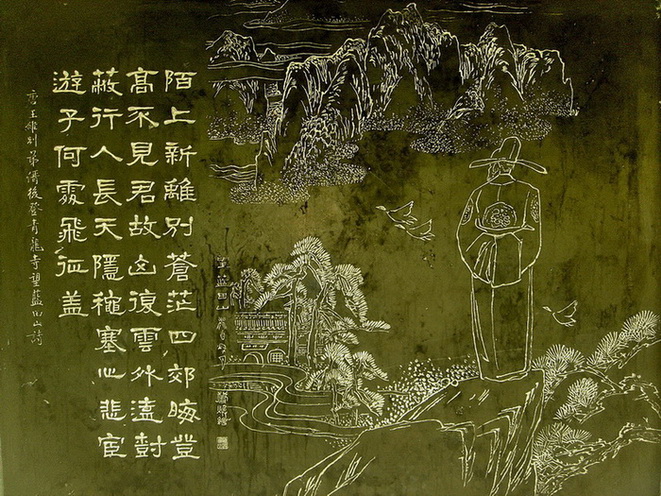 陌上新離別蒼茫四郊晦登
高不見君故山復雲外遠尌
蔽行人長天隱穐塞心悲宦
遊子何處飛征盖
唐王維別弟縉後登青龍寺望藍田山詩